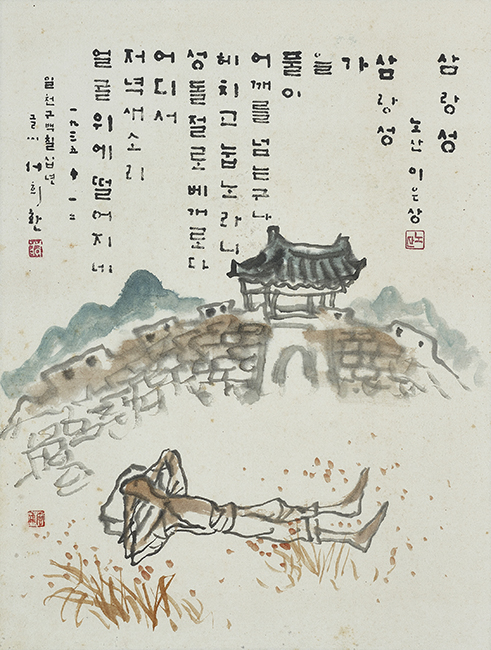 삼랑성
노산 이은상
삼랑성
가
을
풀이
어깨를 넘는구나
헤치고 눕노라니
성돌 절로 베개로다
어디서
저녁 새소리
얼굴 위에 떨어지네
일천구백칠십년
글씨 서희환